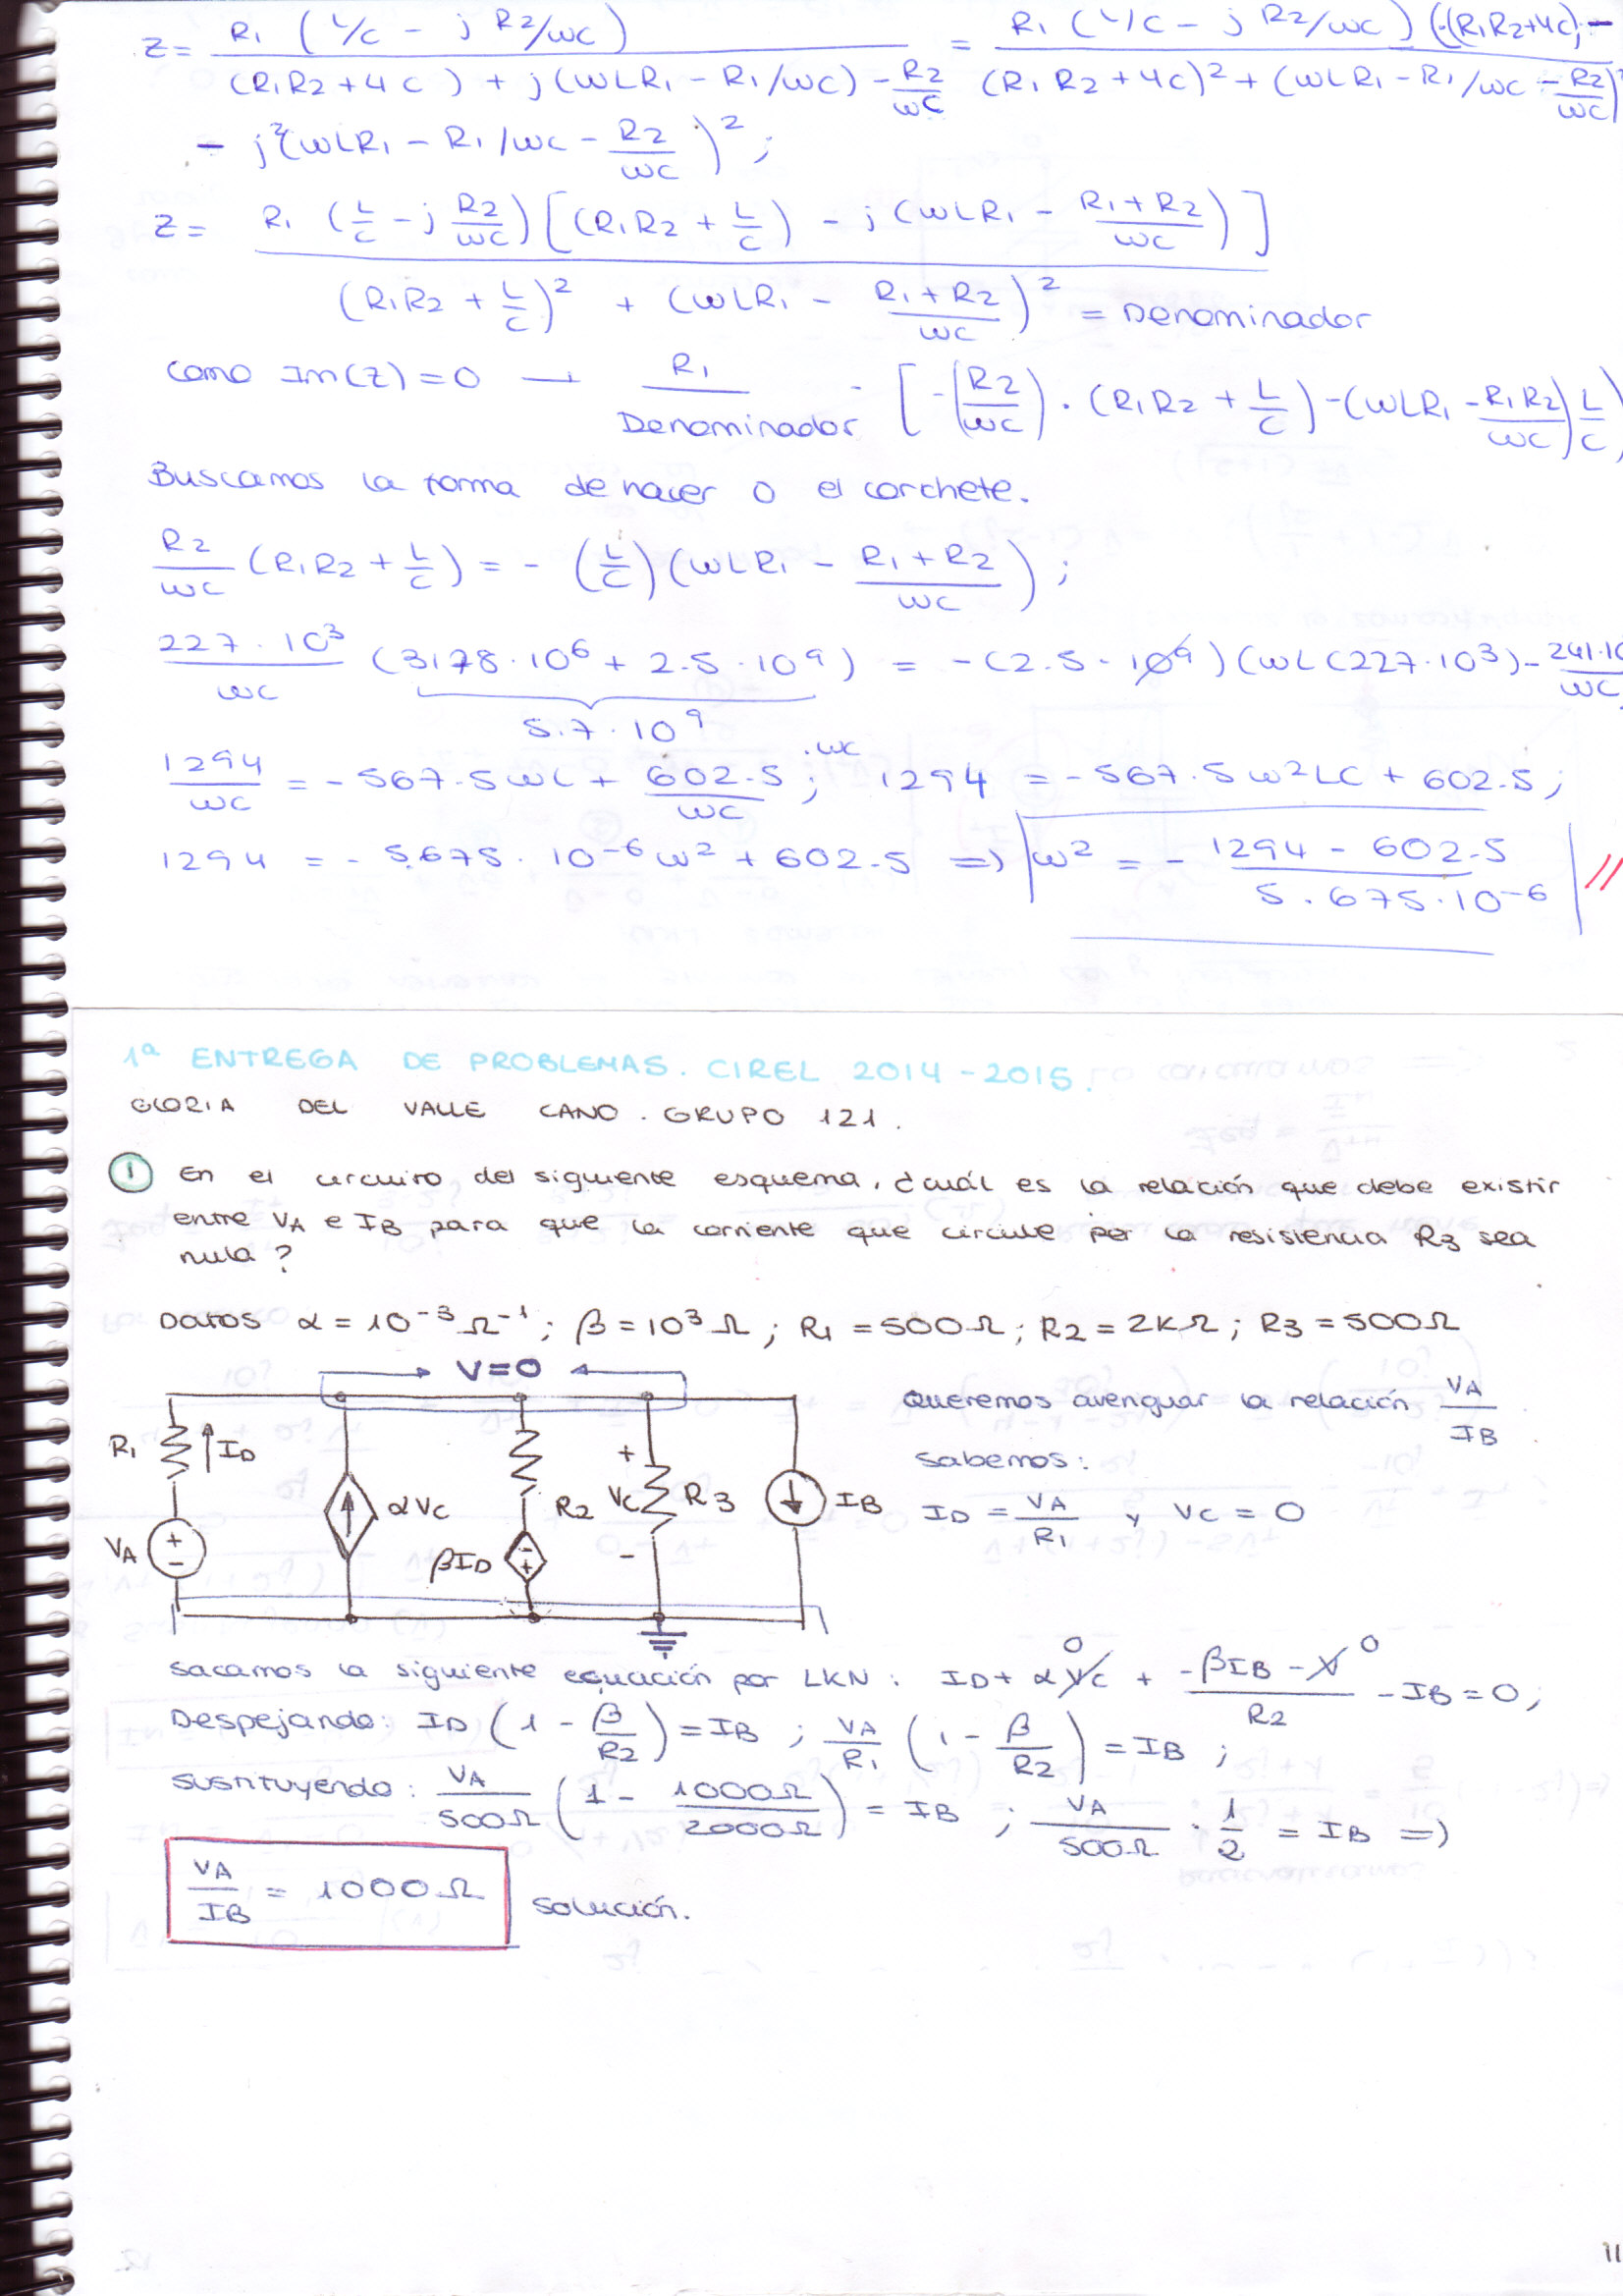 Z = R1 (L/C - j R2/ωC) / (R1R2 + 4C) + j(ωLR1 - R1/ωC) - R2/ωC = R1 (L/C - j R2/ωC) ((R1R2+4C); - / (R1R2 + 4C)² + (ωLR1 - R1/ωC - R2/ωC)²
- j²(ωLR1 - R1/ωC - R2/ωC)² ;
Z = R1 (L/C - j R2/ωC) [(R1R2 + L/C) - j (ωLR1 - R1+R2/ωC)] / (R1R2 + L/C)² + (ωLR1 - R1+R2/ωC)² = Denominador
como Im(Z)=0 → R1/Denominador · [-(R2/ωC) · (R1R2 + L/C) - (ωLR1 - R1R2/ωC) L/C)
Buscamos la forma de hacer 0 el corchete.
R2/ωC (R1R2 + L/C) = - (L/C)(ωLR1 - R1+R2/ωC) ;
227·10³/ωC (3178·10⁶ + 2.5·10⁹) = -(2.5·10⁹)(ωL(227·10³) - 241·10/ωC
5.7·10⁹
1294/ωC = -567.5ωL + 602.5/ωC ; ·ωC 1294 = -567.5ω²LC + 602.5 ;
1294 = -5.675·10⁻⁶ω² + 602.5 => ω² = - 1294 - 602.5 / 5.675·10⁻⁶ //
1ª ENTREGA DE PROBLEMAS. CIREL 2014-2015.
GLORIA DEL VALLE CANO. GRUPO 121.
1 En el circuito del siguiente esquema, ¿cuál es la relación que debe existir
entre VA e IB para que la corriente que circule por la resistencia R3 sea
nula?
Datos α = 10⁻³Ω⁻¹ ; β = 10³Ω ; R1 = 500Ω ; R2 = 2KΩ ; R3 = 500Ω
V=0
R1 ID αVC R2 VC + - R3 IB
VA + - βID - +
Queremos averiguar la relación VA/IB.
Sabemos:
ID = VA/R1 y VC = 0
Sacamos la siguiente ecuación por LKN: ID + αVC 0 + -βIB - V 0 / R2 - IB = 0 ;
Despejando: ID (1 - β/R2) = IB ; VA/R1 (1 - β/R2) = IB ;
Sustituyendo: VA/500Ω (1 - 1000Ω/2000Ω) = IB ; VA/500Ω · 1/2 = IB =>
VA/IB = 1000Ω solución.
11